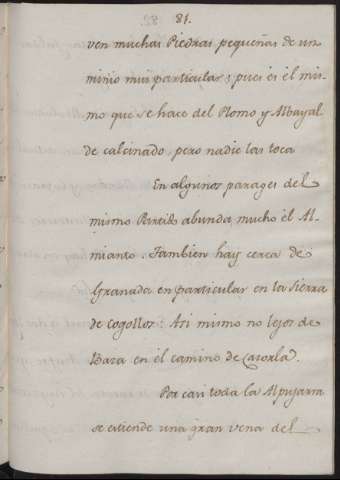 81.
ven muchas Piedras pequeñas de un
minio mui particular; pues es el mis
mo que se hace del Plomo y Albayal
de calcinado, pero nadie las toca
En algunos parages del
mismo Partido abunda mucho el A
mianto. Tambien hay cerca de
Granada en particular en la Sierra
de Cogollos: Asi mismo no lejos de
Baza en el camino de Cazorla.
Por casi toda la Alpujarra
se estiende una gran vena del